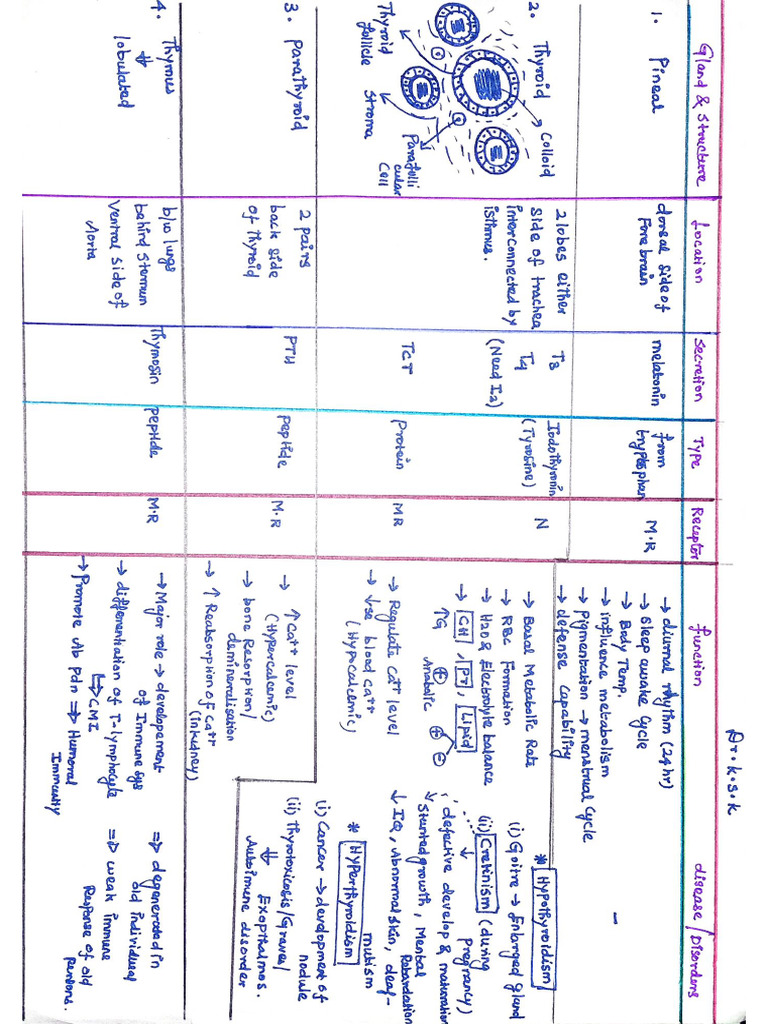 Dr. K.S.K
Gland & Structure
Location
Secretion
Type
Receptor
function
disease/Disorders
1. Pineal
dorsal side of
Forebrain
melatonin
from
tryptophan
M.R
→ diurnal rhythm (24hr)
→ sleep awake cycle
→ Body Temp.
→ influence metabolism
→ pigmentation → menstrual Cycle
→ defense capability
-
2. Thyroid
Colloid
Thyroid
follicle
Stroma
Parafolli
cular
Cell
2 lobes either
side of trachea
interconnected by
isthmus.
T3
T4
(Need I2)
Iodothyronin
(Tyrosine)
N
→ Basal Metabolic Rate
→ RBC Formation
→ H2O & Electrolyte balance
→ CH, Pr, Lipid
↑G ⊕ ⊕ ⊖
Anabolic
TCT
Protein
MR
→ Regulate Ca++ level
→ ↓se blood Ca++
(Hypocalcemic)
* Hypothyroidism
(i) Goitre → Enlarged gland
(ii) Cretinism (during
pregnancy)
defective develop & maturation
stunted growth, Mental
Retardation
↓ IQ, Abnormal skin, deaf-
mutism
* Hyperthyroidism
(i) Cancer → development of
nodule
(ii) Thyrotoxicosis/Graves/
⇓ Exopthalmos.
Autoimmune disorder
3. Parathyroid
2 pairs
back side
of thyroid
PTH
peptide
M.R
→ ↑ Ca++ level
(Hypercalcemic)
→ bone Resorption/
demineralisation
→ ↑ Reabsorption of Ca++
(in kidney)
4. Thymus
⇓
lobulated
b/w lungs
behind sternum
Ventral side of
Aorta
Thymosin
peptide
M.R
→ Major role → developement
of Immune sys
→ differentiation of T-lymphocyte
↳ CMI
→ Promote Ab Pdn ⇒ Humoral
Immunity
⇒ degenerated in
old individual
⇒ weak immune
Response of old
persons.